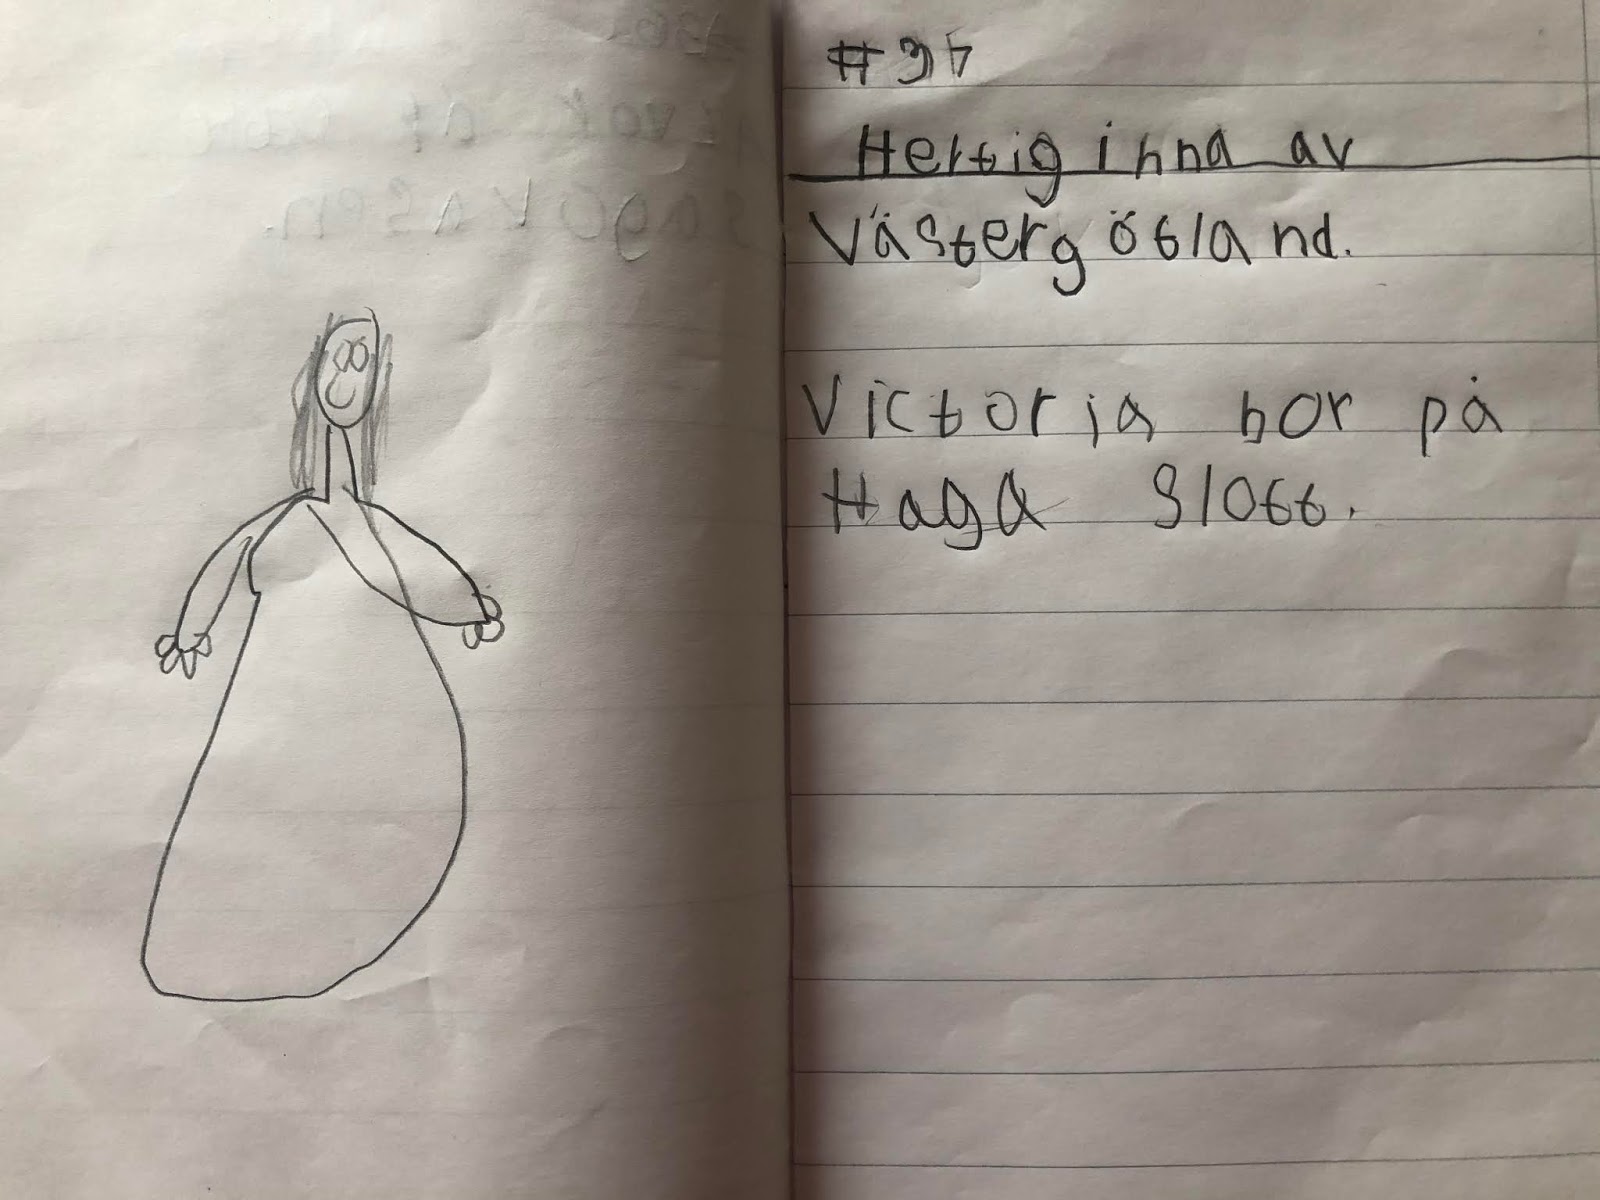 Hertiginna av
Västergötland.
Victoria bor på
Haga Slott.